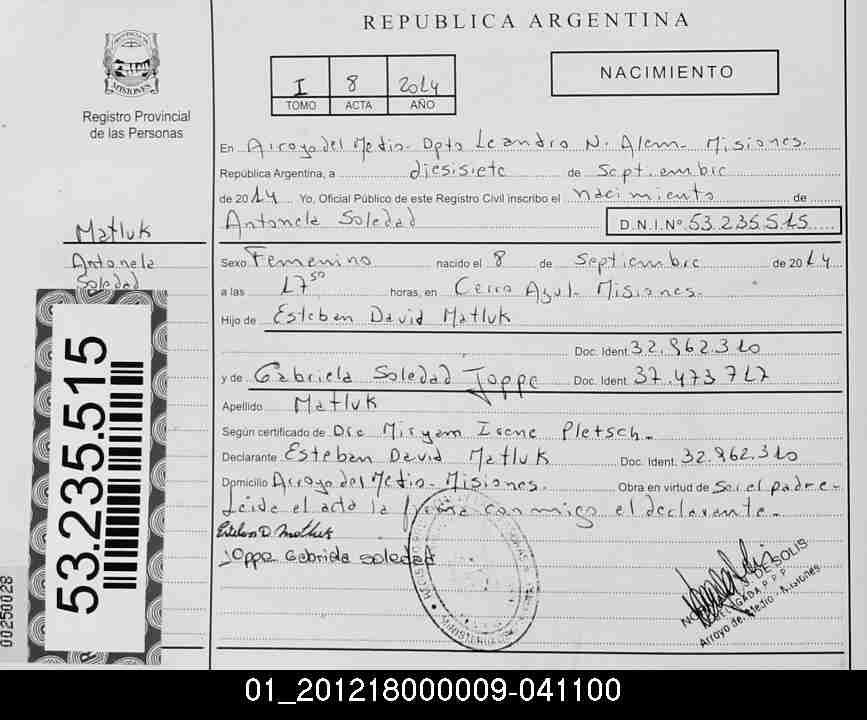 REPUBLICA ARGENTINA
PROVINCIA DE MISIONES
Registro Provincial
de las Personas
I 8 2014
TOMO ACTA AÑO
NACIMIENTO
En Arroyo del Medio - Dpto Leandro N. Alem - Misiones.
República Argentina, a diesisiete de Septiembre
de 2014 Yo, Oficial Público de este Registro Civil inscribo el nacimiento de
Antonela Soledad D.N.I.Nº 53.235.515
Matluk
Antonela
Soledad
Sexo Femenino nacido el 8 de Septiembre de 2014
a las 17 50 horas, en Cerro Azul - Misiones.
Hijo de Esteban David Matluk
Doc. Ident. 32.862.310
y de Gabriela Soledad Joppe Doc. Ident. 37.473 717
Apellido Matluk
Según certificado de Dra Miryam Irene Pletsch.
Declarante Esteban David Matluk Doc. Ident. 32.862.310
Domicilio Arroyo del Medio - Misiones. Obra en virtud de Ser el padre -
Leida el acta la firma conmigo el declarante.
Esteban D. Matluk
Joppe Gabriela Soledad
DE SOLIS
DELEGADA P.P.P.
Arroyo del Medio - Misiones
53.235.515
00250028
01_201218000009-041100